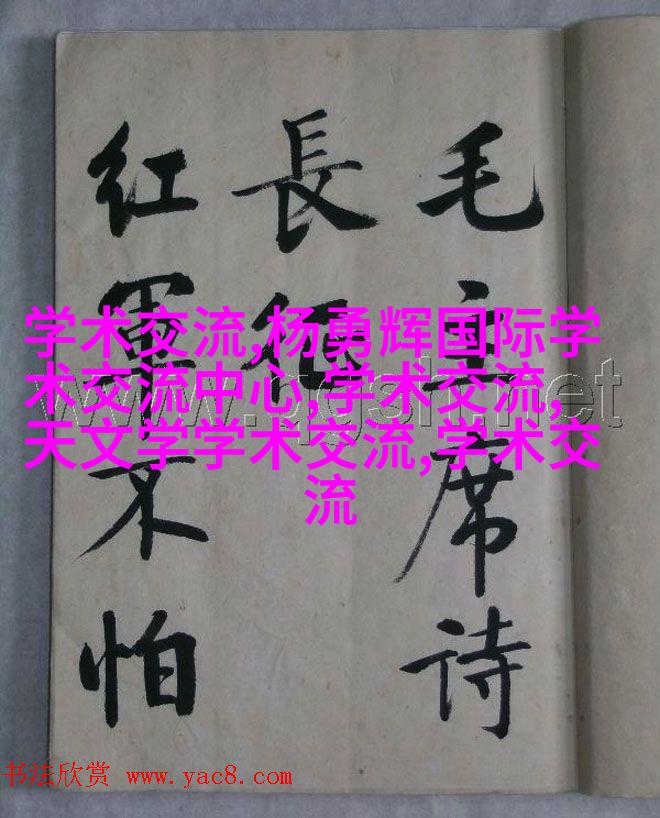 毛主席诗
長征
红軍不怕
学术交流,杨勇辉国际学
术交流中心,学术交流,
天文学学术交流,学术交
流
书法欣赏 www.yac8.com